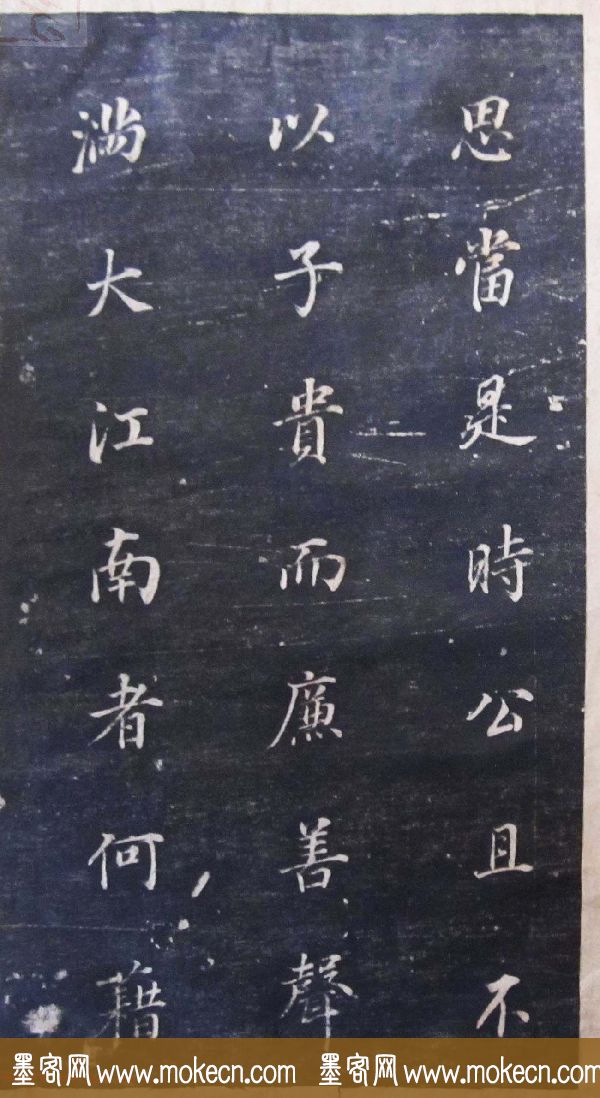 思當是時公且不
以子貴而廉善聲
滿大江南者何藉
墨客网 www.mokecn.com 墨客网 www.mokecn.com